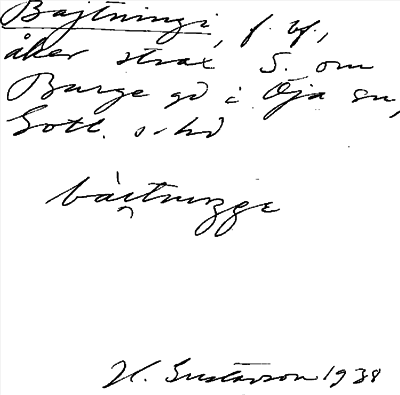 Bajtningi, f. bf.,
åker strax S. om
Burge gd i Öja sn,
Gotl. s. hd
bàitnıŋgε
H. Gustavson 1938